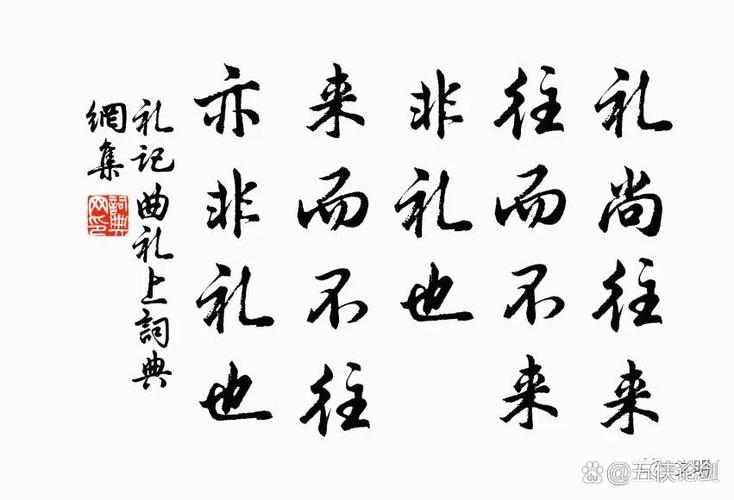 礼尚往来
往而不来
非礼也
来而不往
亦非礼也
礼记曲礼上詞典
網集
詞典网印
@五侠论剑